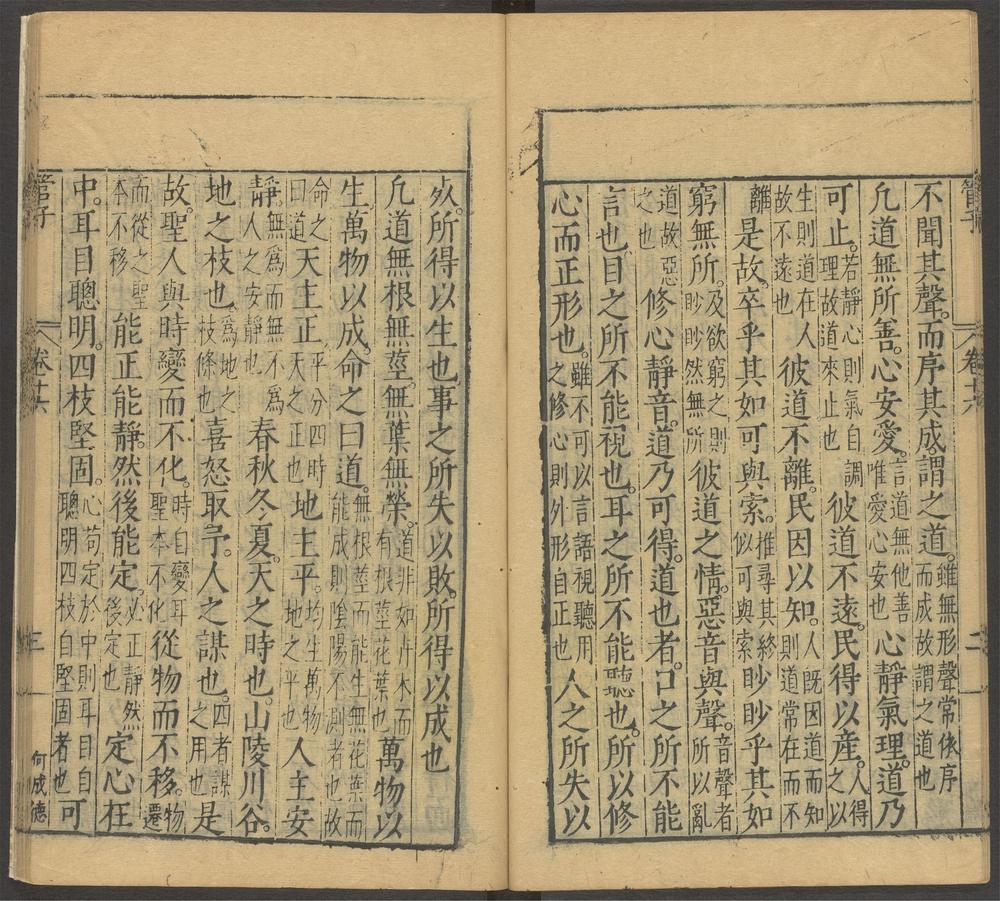 管子 卷十六 二
不聞其聲。而序其成。謂之道。雖無形聲常依序而成故謂之道也
凡道無所。善。心安愛。言道無他善唯愛心安也心靜氣理。道乃
可止。若靜心則氣自調理故道來止也彼道不遠。民得以產。人得之以
生則道在人故不遠也彼道不離。民因以知。人既因道而知則道常在而不
離是故。卒乎其如可與索。推尋其終似可與索眇眇乎其如
窮無所。及欲窮之則眇眇然無所彼道之情。惡音與聲。音聲者所以亂
道故惡之也修心靜音。道乃可得。道也者。口之所不能
言也。目之所不能視也。耳之所不能聽也。所以修
心而正形也。雖不可以言語視聽用之修心則外形自正也人之所失以
死。所得以生也。事之所失以敗。所得以成也
凡道無根無莖。無葉無榮。道非如卉木而有根莖花葉也萬物以
生萬物以成。命之曰道。無根莖而能生無花葉而能成則陰陽不測者也故
命之曰道天主正。平分四時天之正也地主平。均生萬物地之平也人主安
靜。無爲而無不爲人之安靜也春秋冬夏。天之時也。山陵川谷。
地之枝也。爲地之枝條也喜怒取予。人之謀也。四者謀之用也是
故。聖人與時變而不化。時自變耳聖本不化從物而不移。物遷
而從之聖本不移能正能靜。然後能定。必正靜然後定也定心在
中。耳目聰明。四枝堅固。心苟定於中則耳目自聰明四枝自堅固者也可
管子 卷十六 三 何成德